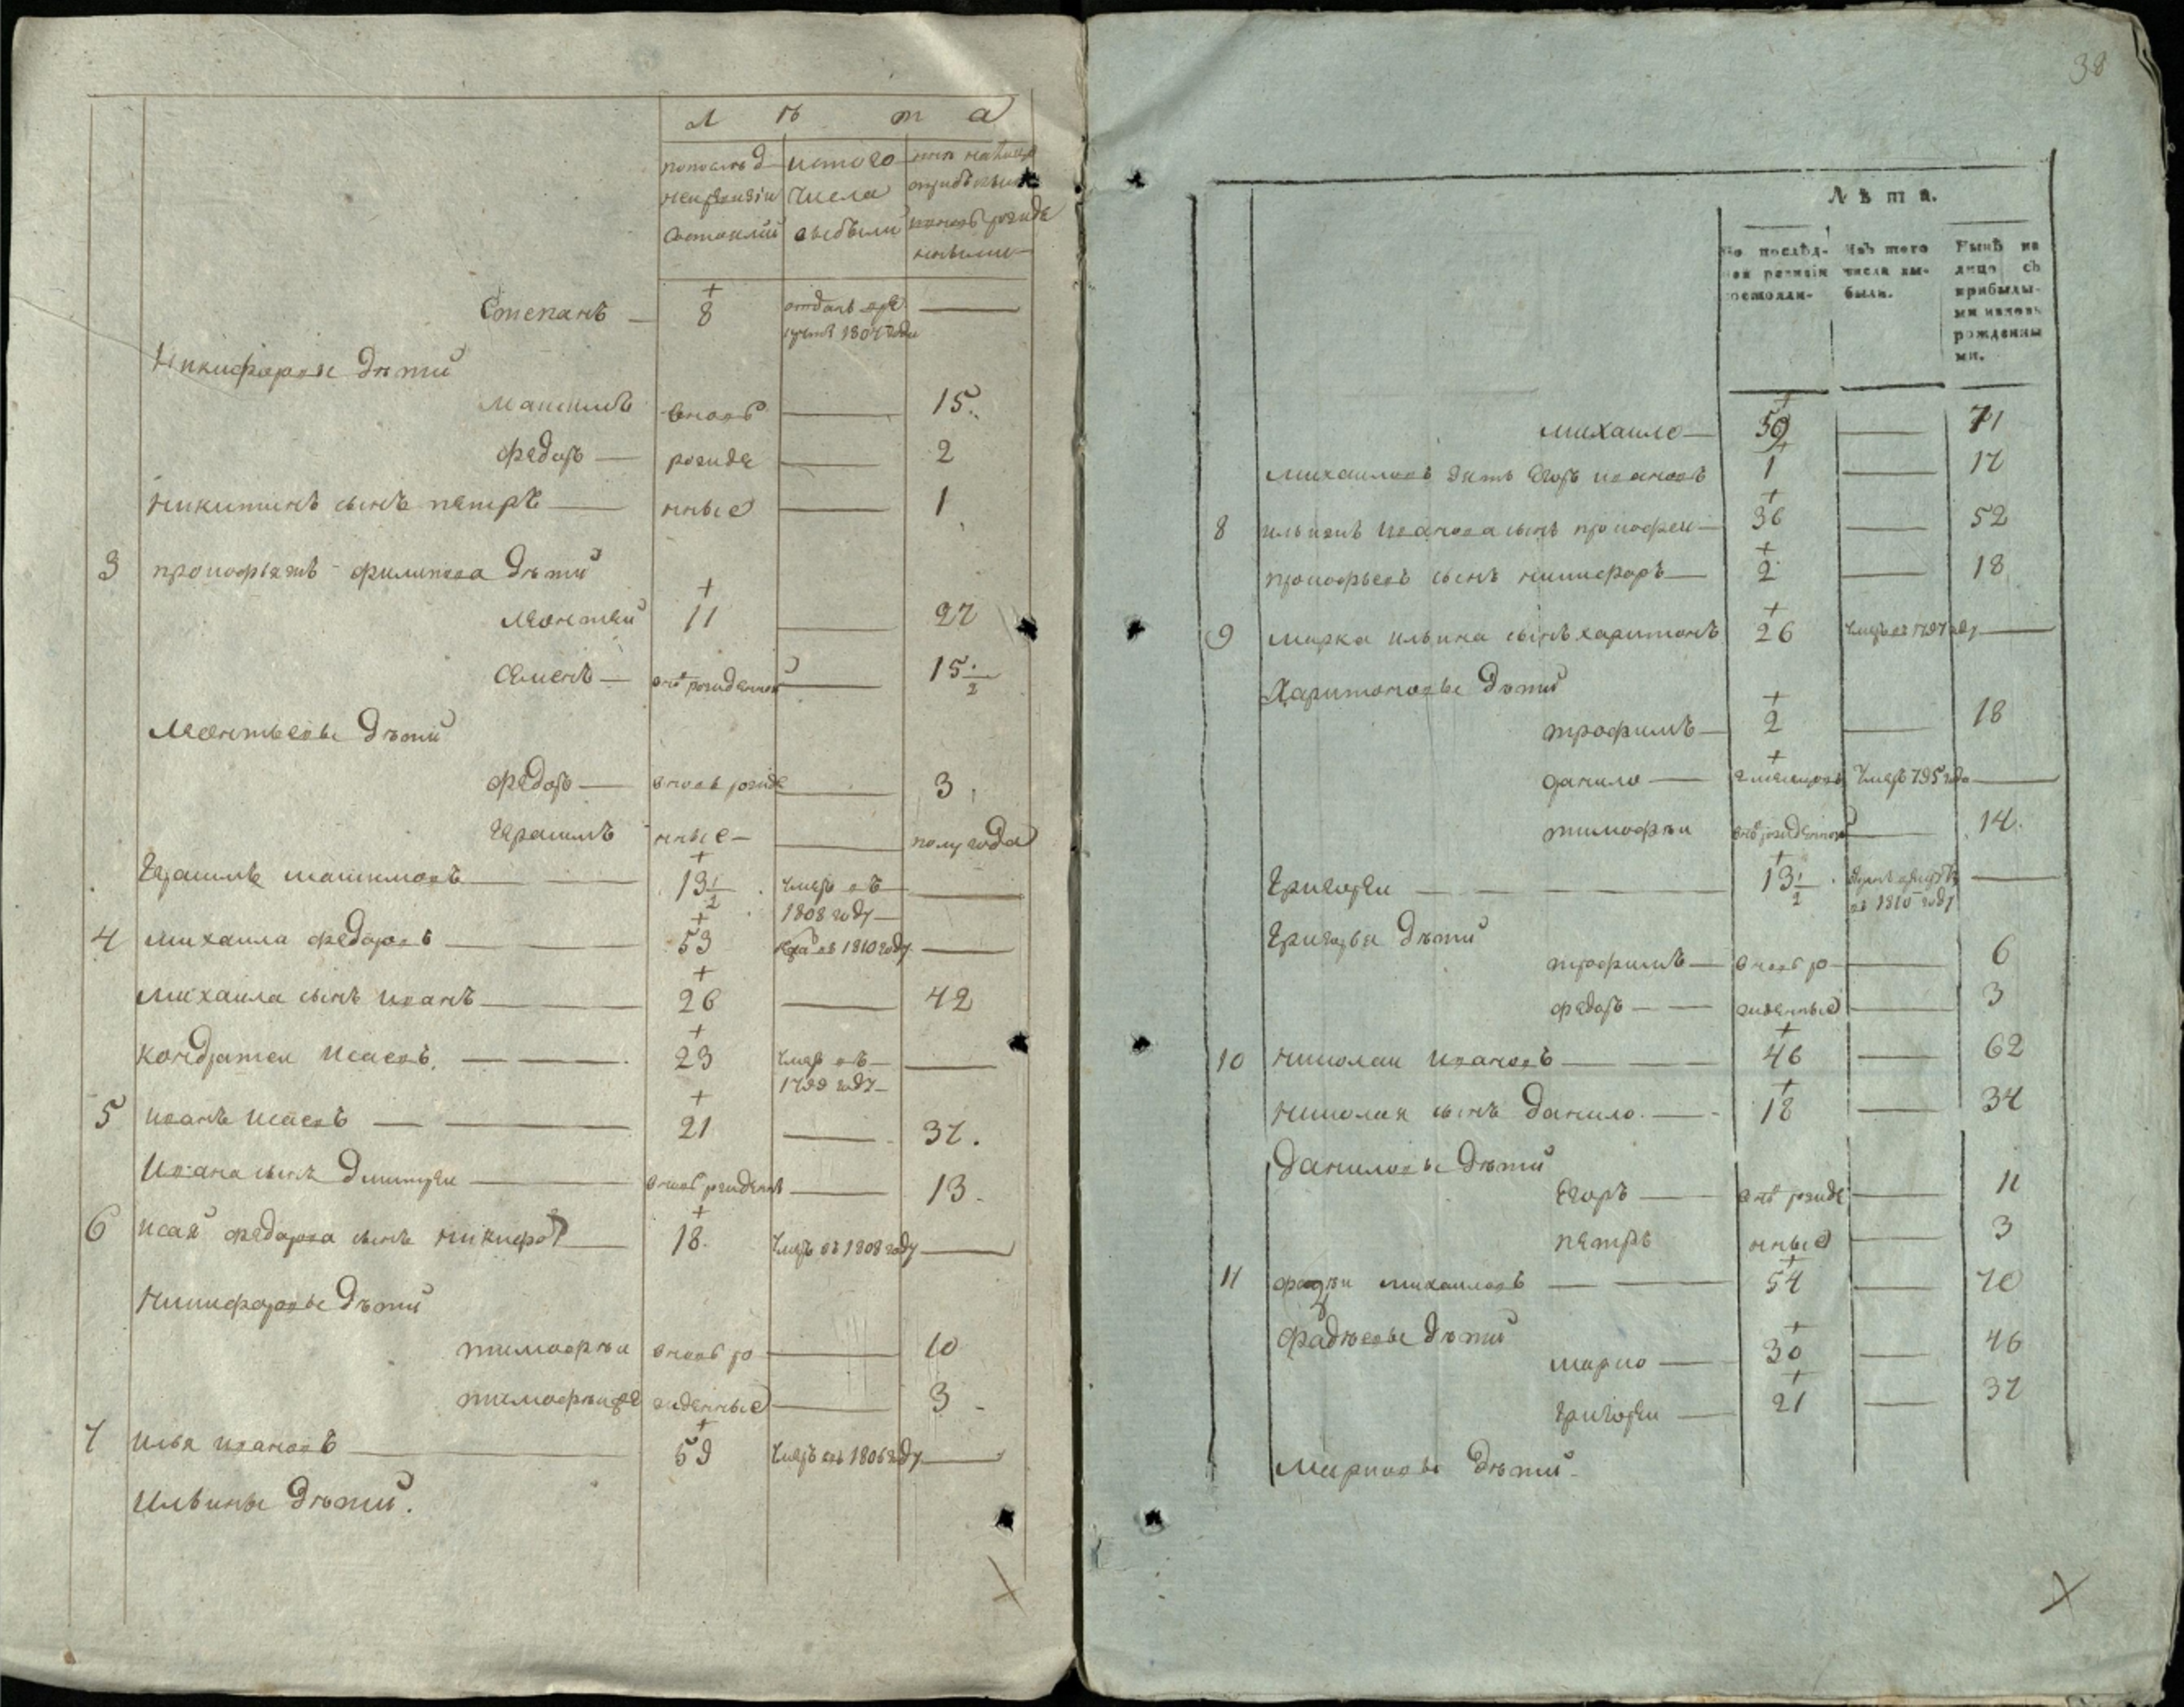 Л ѣ т а
попослѣд изтого
нейревизіи числа
состояли выбыли
Степанъ — 8 отданъ врекруты 1804 года —
Никифоровы дѣти
Максимъ вновь — 15.
Федоръ — рожде — 2
Никитинъ сынъ петръ — нные — 1
3 прокофьевъ филипова дѣти
Леонтеи 11 — 27
Семенъ — внов рожденной — 15 1/2
Леонтьевы дѣти
Федоръ — вновь рожде — 3
Герасимъ нные — — полугода
Герасимъ максимовъ — 13 1/2 умеръ въ 1808 году —
4 михаила федоровъ — 53 умеръ въ 1810 году —
Михаила сынъ иванъ — 26 — 42
Кондратеи Исаевъ — 23 умеръ въ 1799 году —
5 иванъ исаевъ — 21 — 37.
Ивана сынъ Дмитреи — вновь рожденны — 13
6 исая федорова сынъ никифоръ — 18 умеръ въ 1808 году —
Никифоровы дѣти
тимофѣи вновь ро — 10
тимофѣи же жденные — 3
7 илья ивановъ — 59 умеръ въ 1806 году —
Ильины дѣти.
38
Лѣта.
По послѣд- Изъ того Нынѣ на
ней ревизіи числа вы- лицо съ
состояли- были. прибылы-
ми иновь
рожденны
ми.
михаило — — 71
михаиловъ зять Егоръ ивановъ 1 — 17
8 ильинъ иванова сынъ прокофеи — 36 — 52
прокофьевъ сынъ никифоръ — 2 — 18
9 марка ильина сынъ харитонъ 26 умеръ въ 1797 году —
Харитоновы дѣти
трофимъ — 2 — 18
данило — умеръ 795 года —
тимофѣи внов рожденной — 14.
Григореи — 13 1/2 въ 1810 году —
Григорья дѣти
трофимъ — вновь ро — 6
федоръ — жденные — 3
10 николаи ивановъ — 46 — 62
николая сынъ данило. — 18 — 34
Даниловы дѣти
Егоръ — внов рожде — 11
петръ нные — 3
11 фадѣи михаиловъ — 54 — 70
Фадѣевы дѣти
марко — 30 — 46
григореи — 21 — 37
Марковы дѣти